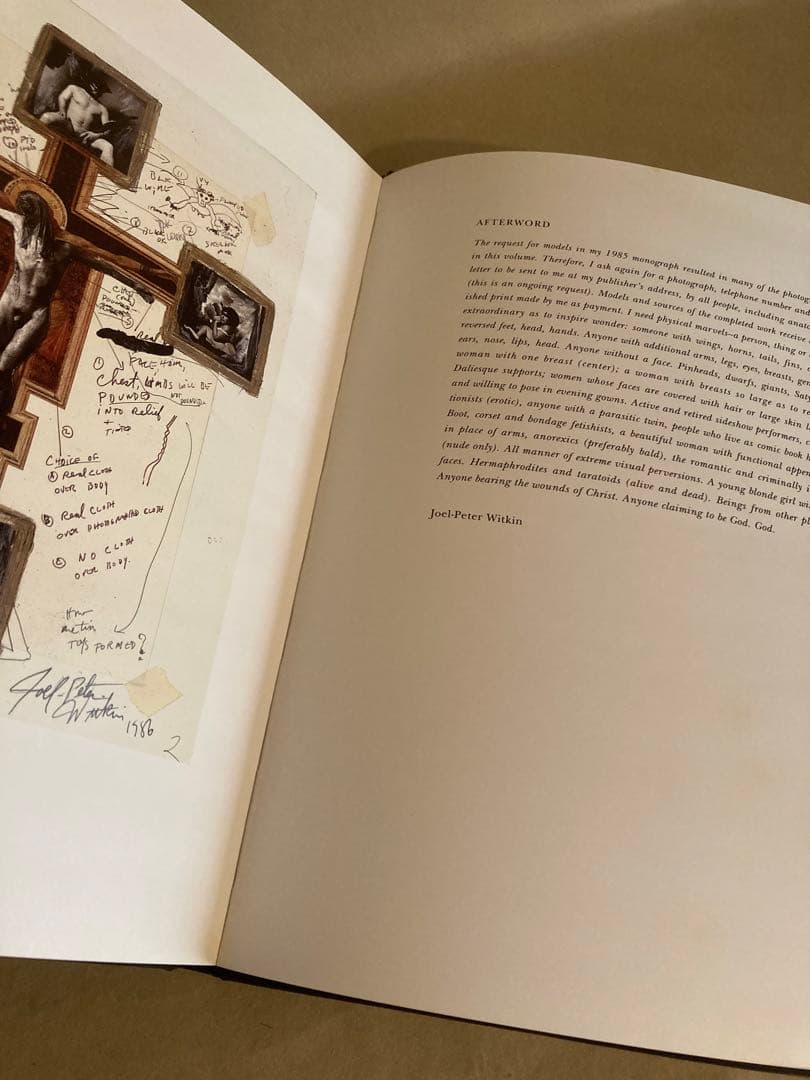 BLK
WIRE
①
②
①
②
CHEST, LIMBS WILL BE
POUNDED
INTO RELIEF
+
TINTED
②
CHOICE OF
Ⓐ REAL CLOTH
OVER BODY
Ⓑ REAL CLOTH
OVER PHOTOGRAPHED CLOTH
Ⓒ NO CLOTH
OVER BODY.
HOW
FORMED?
Joel-Peter
Witkin
1986
2
AFTERWORD
The request for models in my 1985 monograph resulted in many of the
in this volume. Therefore, I ask again for a photograph, telephone number and
letter to be sent to me at my publisher's address, by all people, including
(this is an ongoing request). Models and sources of the completed work receive
ished print made by me as payment. I need physical marvels—a person, thing or
extraordinary as to inspire wonder: someone with wings, horns, tails, fins,
reversed feet, head, hands. Anyone with additional arms, legs, eyes, breasts,
ears, nose, lips, head. Anyone without a face. Pinheads, dwarfs, giants,
woman with one breast (center); a woman with breasts so large as to
Daliesque supports; women whose faces are covered with hair or large skin
and willing to pose in evening gowns. Active and retired sideshow performers,
tionists (erotic), anyone with a parasitic twin, people who live as comic book
Boot, corset and bondage fetishists, a beautiful woman with functional
in place of arms, anorexics (preferably bald), the romantic and criminally
(nude only). All manner of extreme visual perversions. A young blonde girl
faces. Hermaphrodites and taratoids (alive and dead). Beings from other
Anyone bearing the wounds of Christ. Anyone claiming to be God. God.
Joel-Peter Witkin